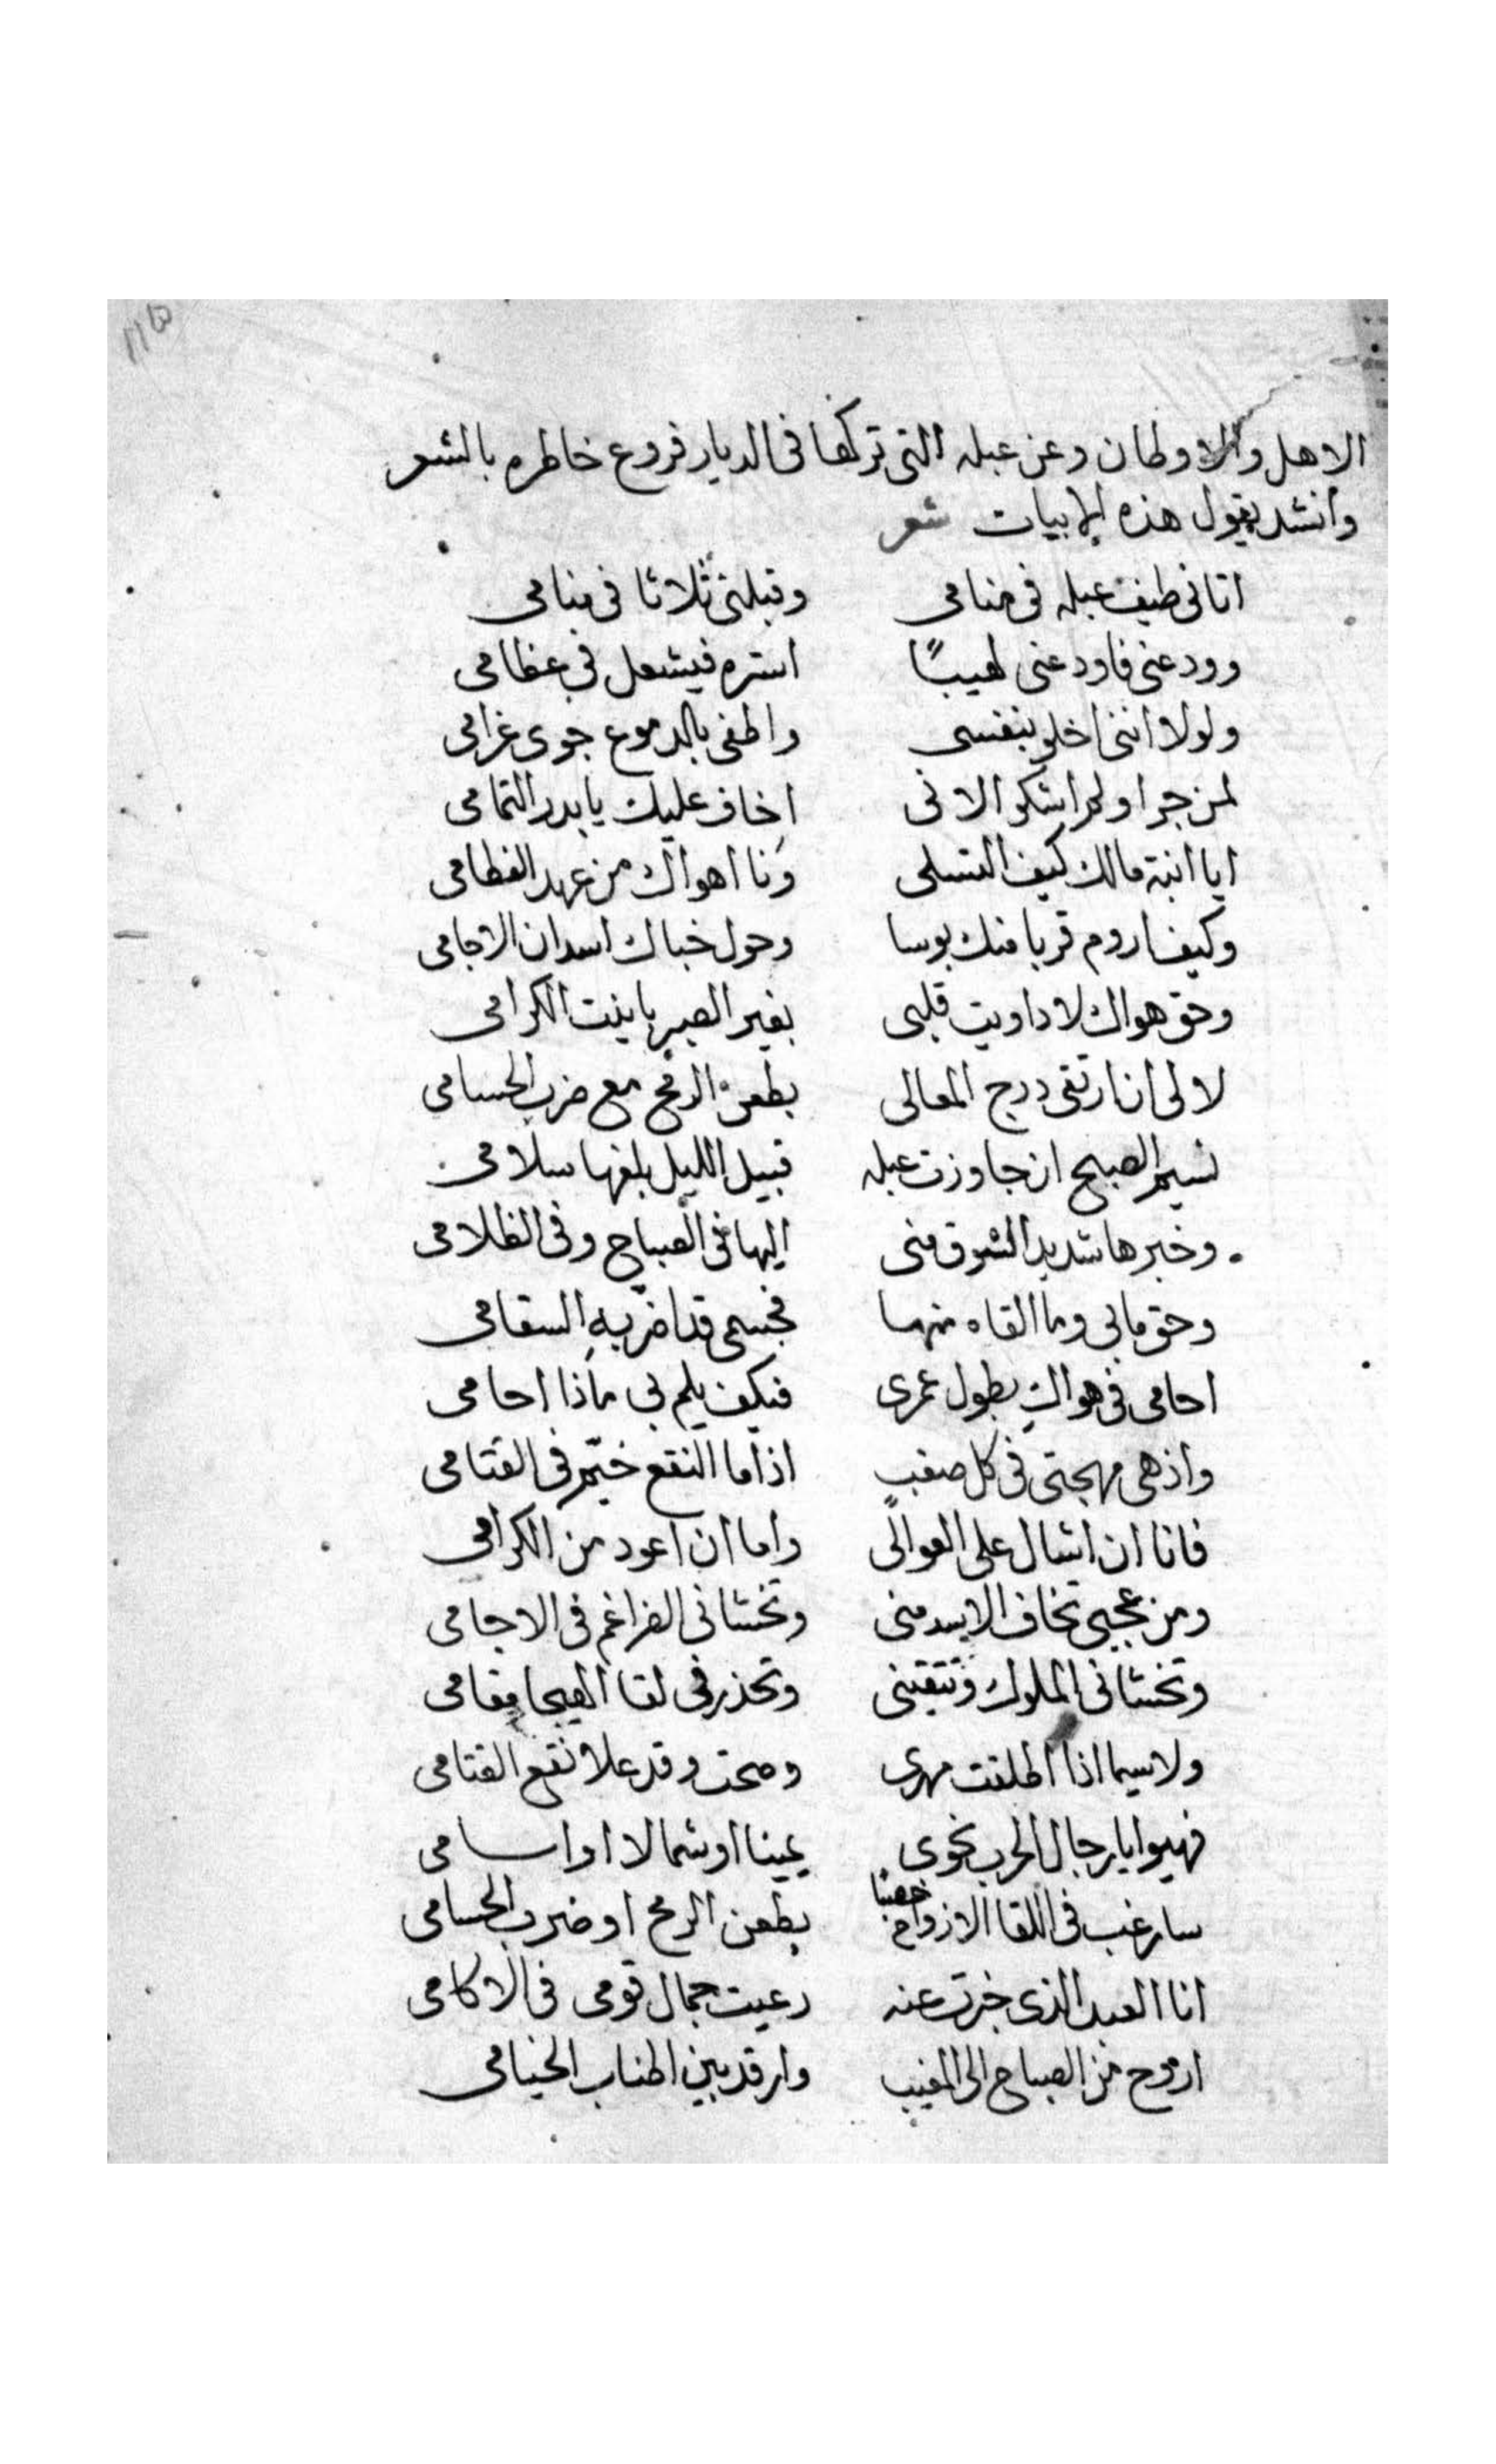 الاهل والاوطان وعن عبله التى تركها فى الديار فروع خاطره بالشعر
وانشد يقول هذه الابيات شعر
اتانى طيف عبله فى منامى وقبلنى ثلاثا فى منامى
وودعنى فاودعنى لهيبًا استره فيشعل فى عظامى
ولولا اننى اخلو بنفسى واطفى بالدموع جوى غرامى
لمن جرا ولم اشكو الانى اخاف عليك يا بدر التمامى
ايا ابنة مالك كيف التسلى ونا اهواك من عهد الفطامى
وكيف اروم قربا منك بوسا وحول خباك اسدان الاجامى
وحق هواك لا داويت قلبى بغير الصبر يا بنت الكرامى
لالى ان ارتقى درج المعالى بطعن الرمح مع ضرب الحسامى
نسيم الصبح ان جاوزت عبله قبيل الليل بلغها سلامى
وخبرها شديد الشوق منى اليها فى الصباح وفى الظلامى
وحق مابى وما القاه منها فجسمى قد اضر به السقامى
احامى فى هواك بطول عمرى فيكف يلم بى ماذا احامى
واذهى مهجتى فى كل صعب اذا ما النقع خيّم فى القتامى
فانا ان اشال على العوالى واما ان اعود من الكرامى
ومن عجبى تخاف الاسد منى وتخشانى الضراغم فى الاجامى
وتخشانى الملوك وتتقينى وتحذر فى لقا الهيجا مقامى
ولا سيما اذا اطلقت مهرى وصحت وقد علا نقع القتامى
فهيوا يا رجال الحرب نحوى يمينا او شمالا او اسامى
سارغب فى اللقا الازواح خصبا بطعن الرمح او ضرب الحسامى
انا العبد الذى خبرت عنه رعيت جمال قومى فى الاكامى
اروح من الصباح الى المغيب وارقد بين اطناب الخيامى